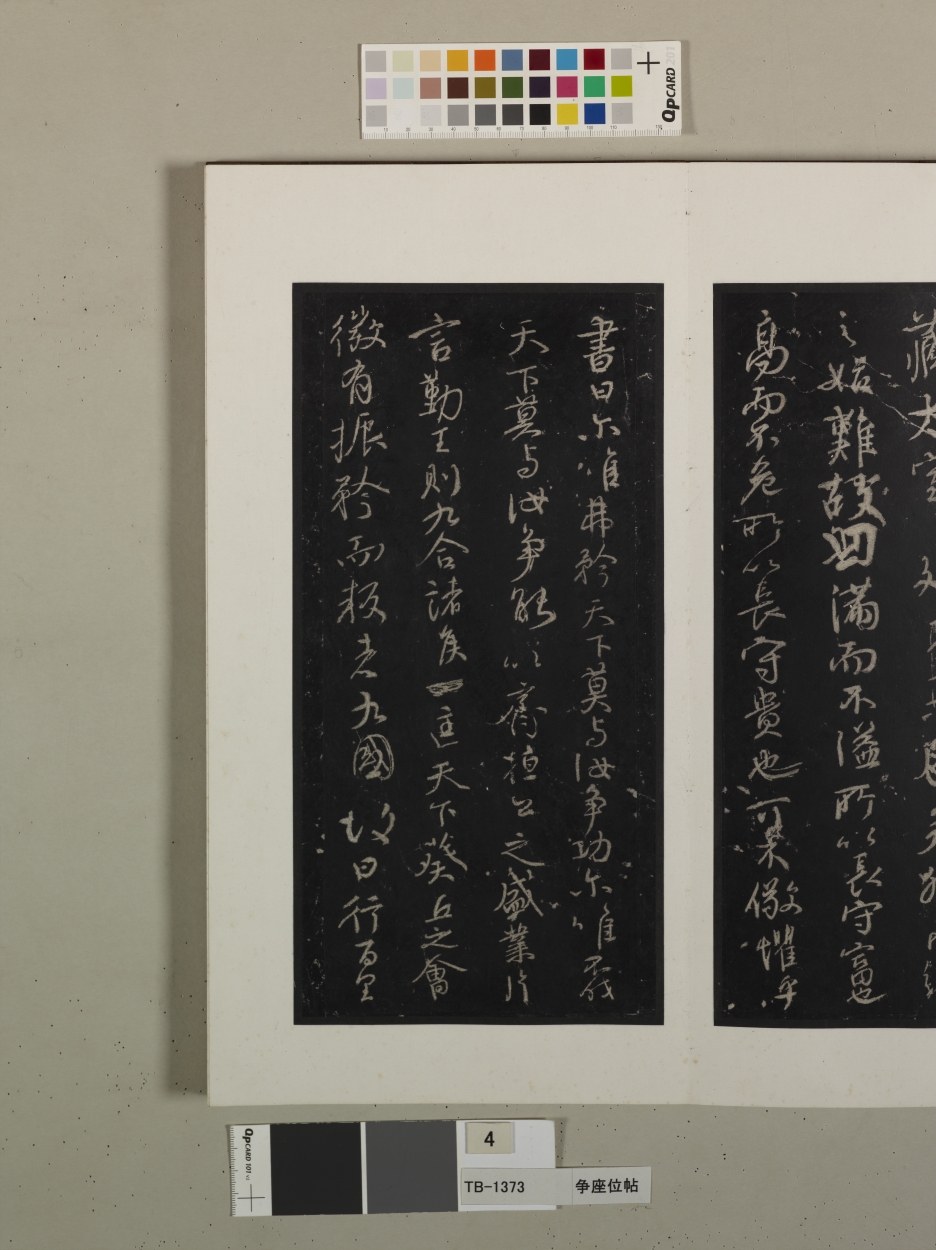 藏太室
之始難故曰滿而不溢所以長守富也
高而不危所以長守貴也可不儆懼乎
書曰尒唯弗矜天下莫与汝爭功尒唯不伐
天下莫与汝爭能以齊桓公之盛業片
言勤王則九合諸侯一匡天下葵丘之會
微有振矜而叛者九國故曰行百里
QPCARD 201
QPCARD 101
4
TB-1373
争座位帖